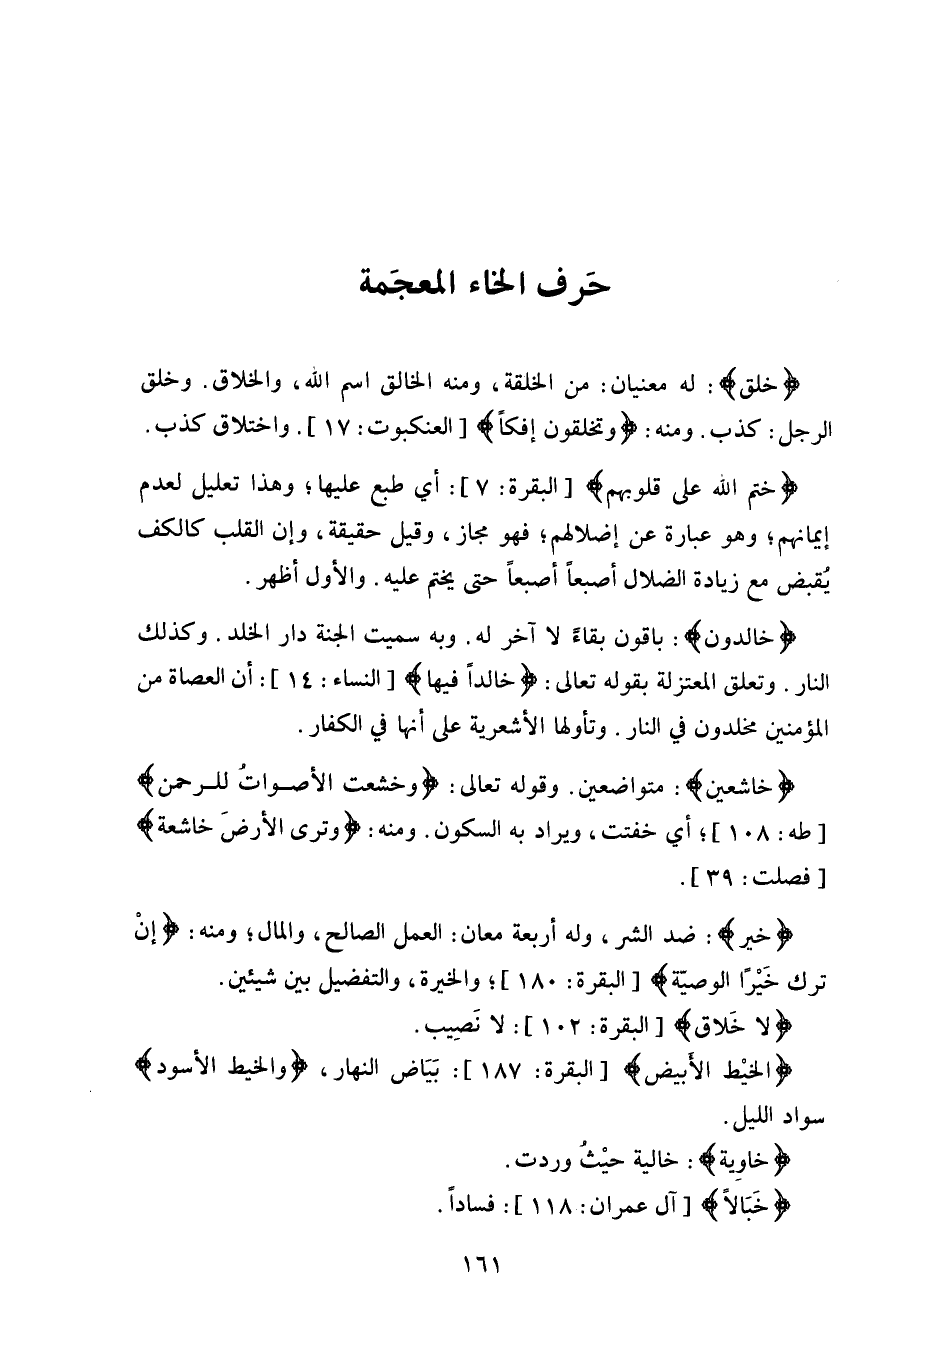 حَرف الخاء المعجَمة
﴿خلق﴾: له معنيان: من الخلقة، ومنه الخالق اسم الله، والخلاق. وخلق
الرجل: كذب. ومنه: ﴿وتخلقون إفكاً﴾ [العنكبوت: ١٧]. واختلاق كذب.
﴿ختم الله على قلوبهم﴾ [البقرة: ٧]: أي طبع عليها؛ وهذا تعليل لعدم
إيمانهم؛ وهو عبارة عن إضلالهم؛ فهو مجاز، وقيل حقيقة، وإن القلب كالكف
يُقبض مع زيادة الضلال أصبعاً أصبعاً حتى يختم عليه. والأول أظهر.
﴿خالدون﴾: باقون بقاءً لا آخر له. وبه سميت الجنة دار الخلد. وكذلك
النار. وتعلق المعتزلة بقوله تعالى: ﴿خالداً فيها﴾ [النساء: ١٤]: أن العصاة من
المؤمنين مخلدون في النار. وتأولها الأشعرية على أنها في الكفار.
﴿خاشعين﴾: متواضعين. وقوله تعالى: ﴿وخشعت الأصواتُ للرحمن﴾
[طه: ١٠٨]؛ أي خفتت، ويراد به السكون. ومنه: ﴿وترى الأرضَ خاشعة﴾
[فصلت: ٣٩].
﴿خير﴾: ضد الشر، وله أربعة معان: العمل الصالح، والمال؛ ومنه: ﴿إنْ
ترك خَيْرًا الوصيّة﴾ [البقرة: ١٨٠]؛ والخيرة، والتفضيل بين شيئين.
﴿لا خَلاق﴾ [البقرة: ١٠٢]: لا نَصِيب.
﴿الخيْط الأَبيض﴾ [البقرة: ١٨٧]: بَيَاض النهار، ﴿والخيط الأسود﴾
سواد الليل.
﴿خاوِية﴾: خالية حيْثُ وردت.
﴿خَبَالاً﴾ [آل عمران: ١١٨]: فساداً.
١٦١